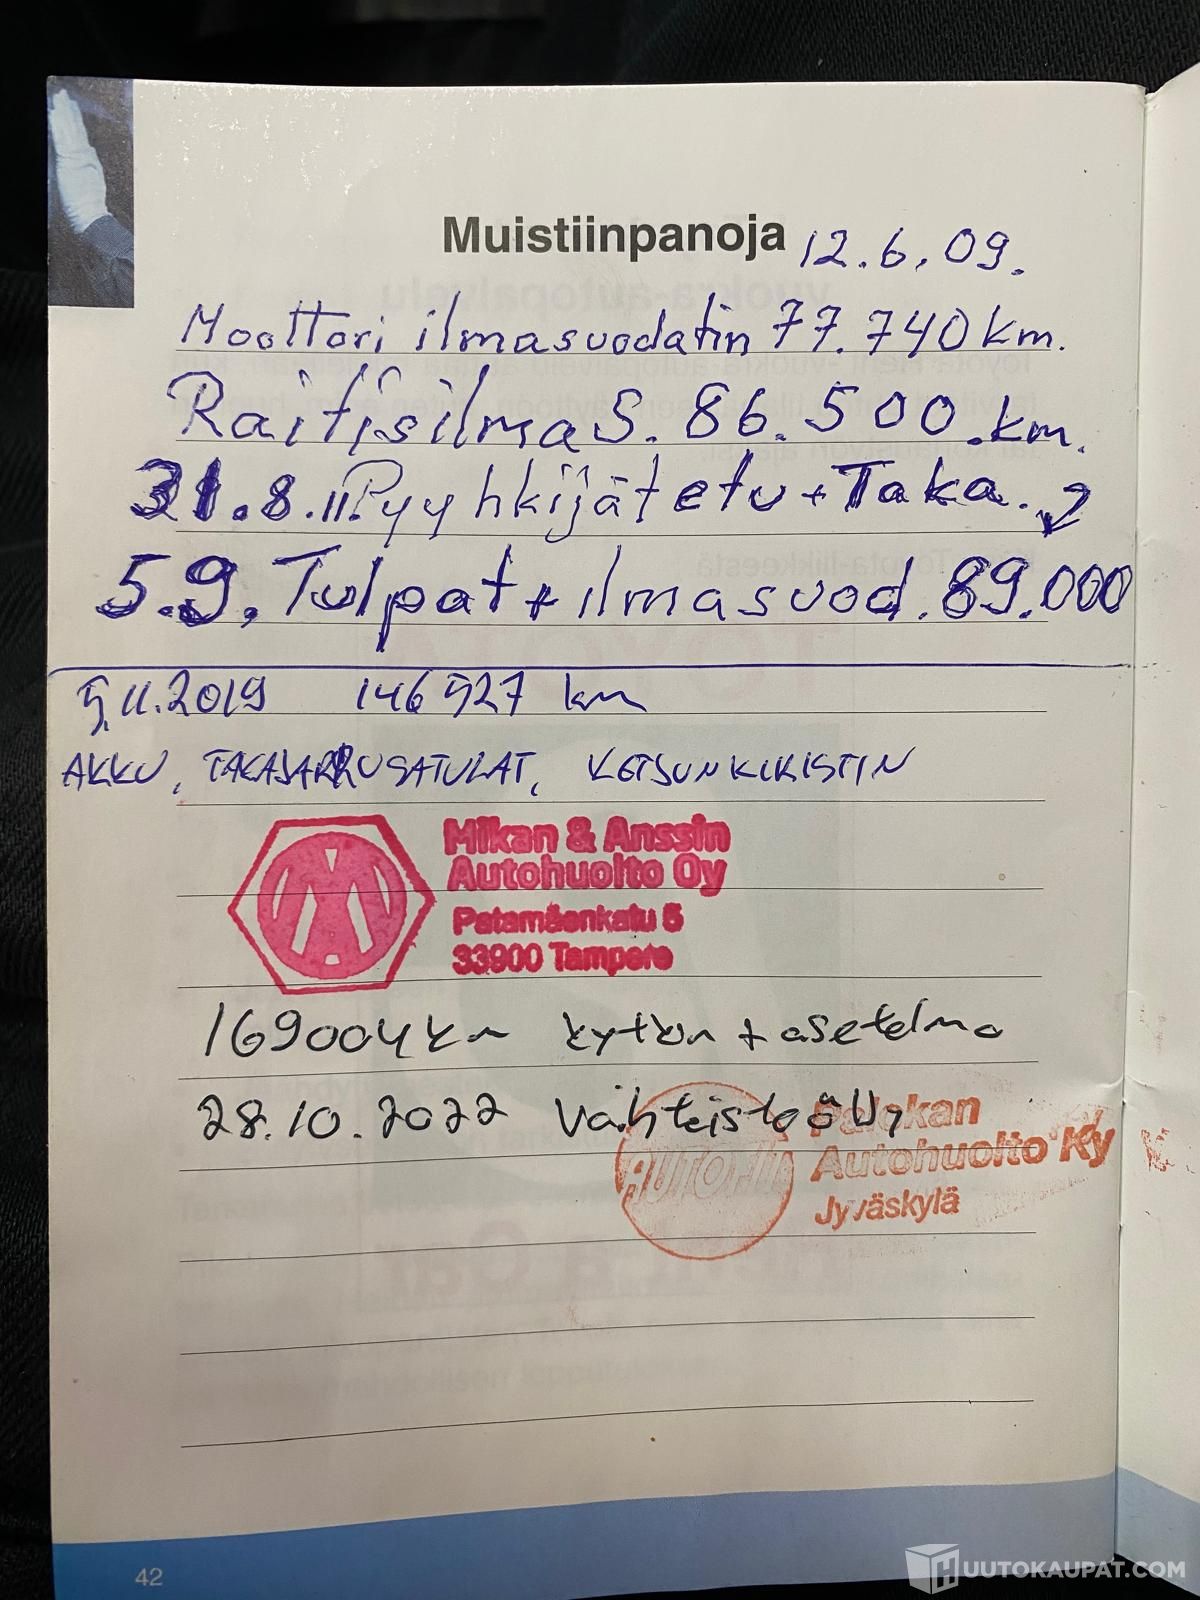 Muistiinpanoja 12.6.09.
Moottori ilmasuodatin 77.740 km.
Raitisilma S. 86.500.km.
31.8.11. Pyyhkijät etu + Taka. 2
5.9. Tulpat + ilmasuod. 89.000
5.11.2019 146 527 km
AKKU, TAKAJARRUSATULAT, KETJUNKIRISTIN
Mikan & Anssin
Autohuolto Oy
Patamäenkatu 5
33900 Tampere
169004 km kytkin + asetelma
28.10.2022 Vaihteistoöljy
Palokan
AUTOFIT Autohuolto Ky
Jyväskylä
42
HUUTOKAUPAT.COM